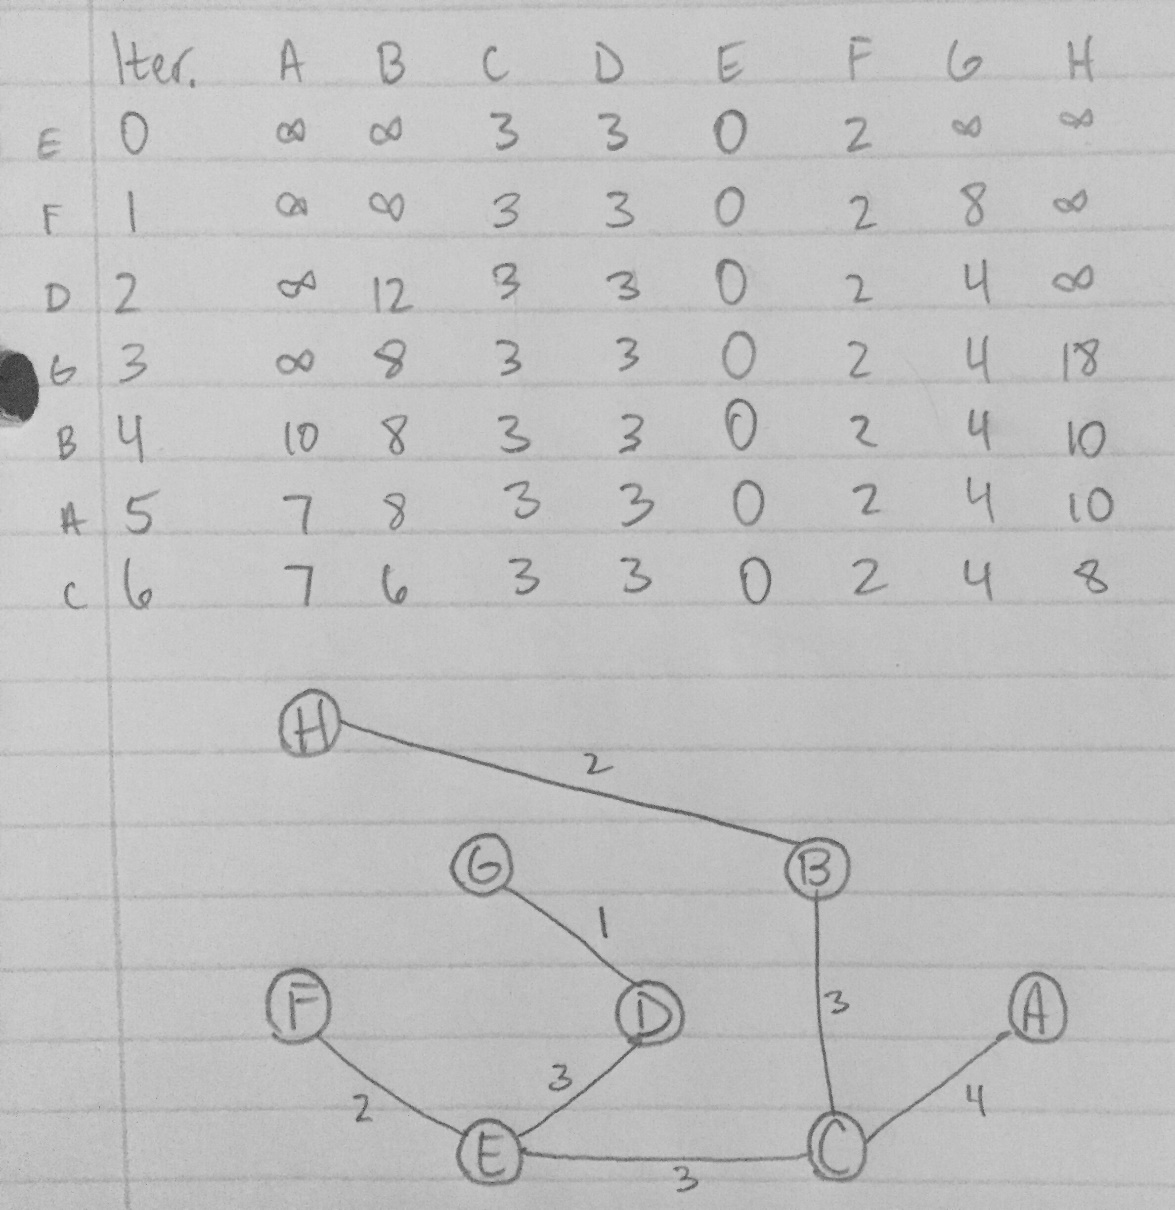 Iter. A B C D E F G H
E 0 ∞ ∞ 3 3 0 2 ∞ ∞
F 1 ∞ ∞ 3 3 0 2 8 ∞
D 2 ∞ 12 3 3 0 2 4 ∞
G 3 ∞ 8 3 3 0 2 4 18
B 4 10 8 3 3 0 2 4 10
A 5 7 8 3 3 0 2 4 10
C 6 7 6 3 3 0 2 4 8
H
2
G B
1
F D 3 A
2 3 4
E 3 C